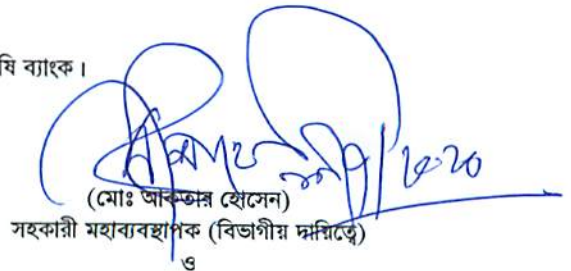 ষি ব্যাংক।
(মোঃ আকতার হোসেন)
সহকারী মহাব্যবস্থাপক (বিভাগীয় দায়িত্বে)
ও